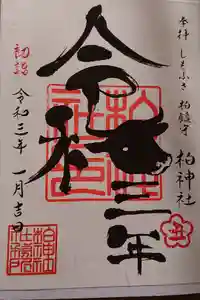 奉拝 しもふさ 柏鎮守 柏神社
令和三年
初詣
令和三年 一月吉日
柏神社